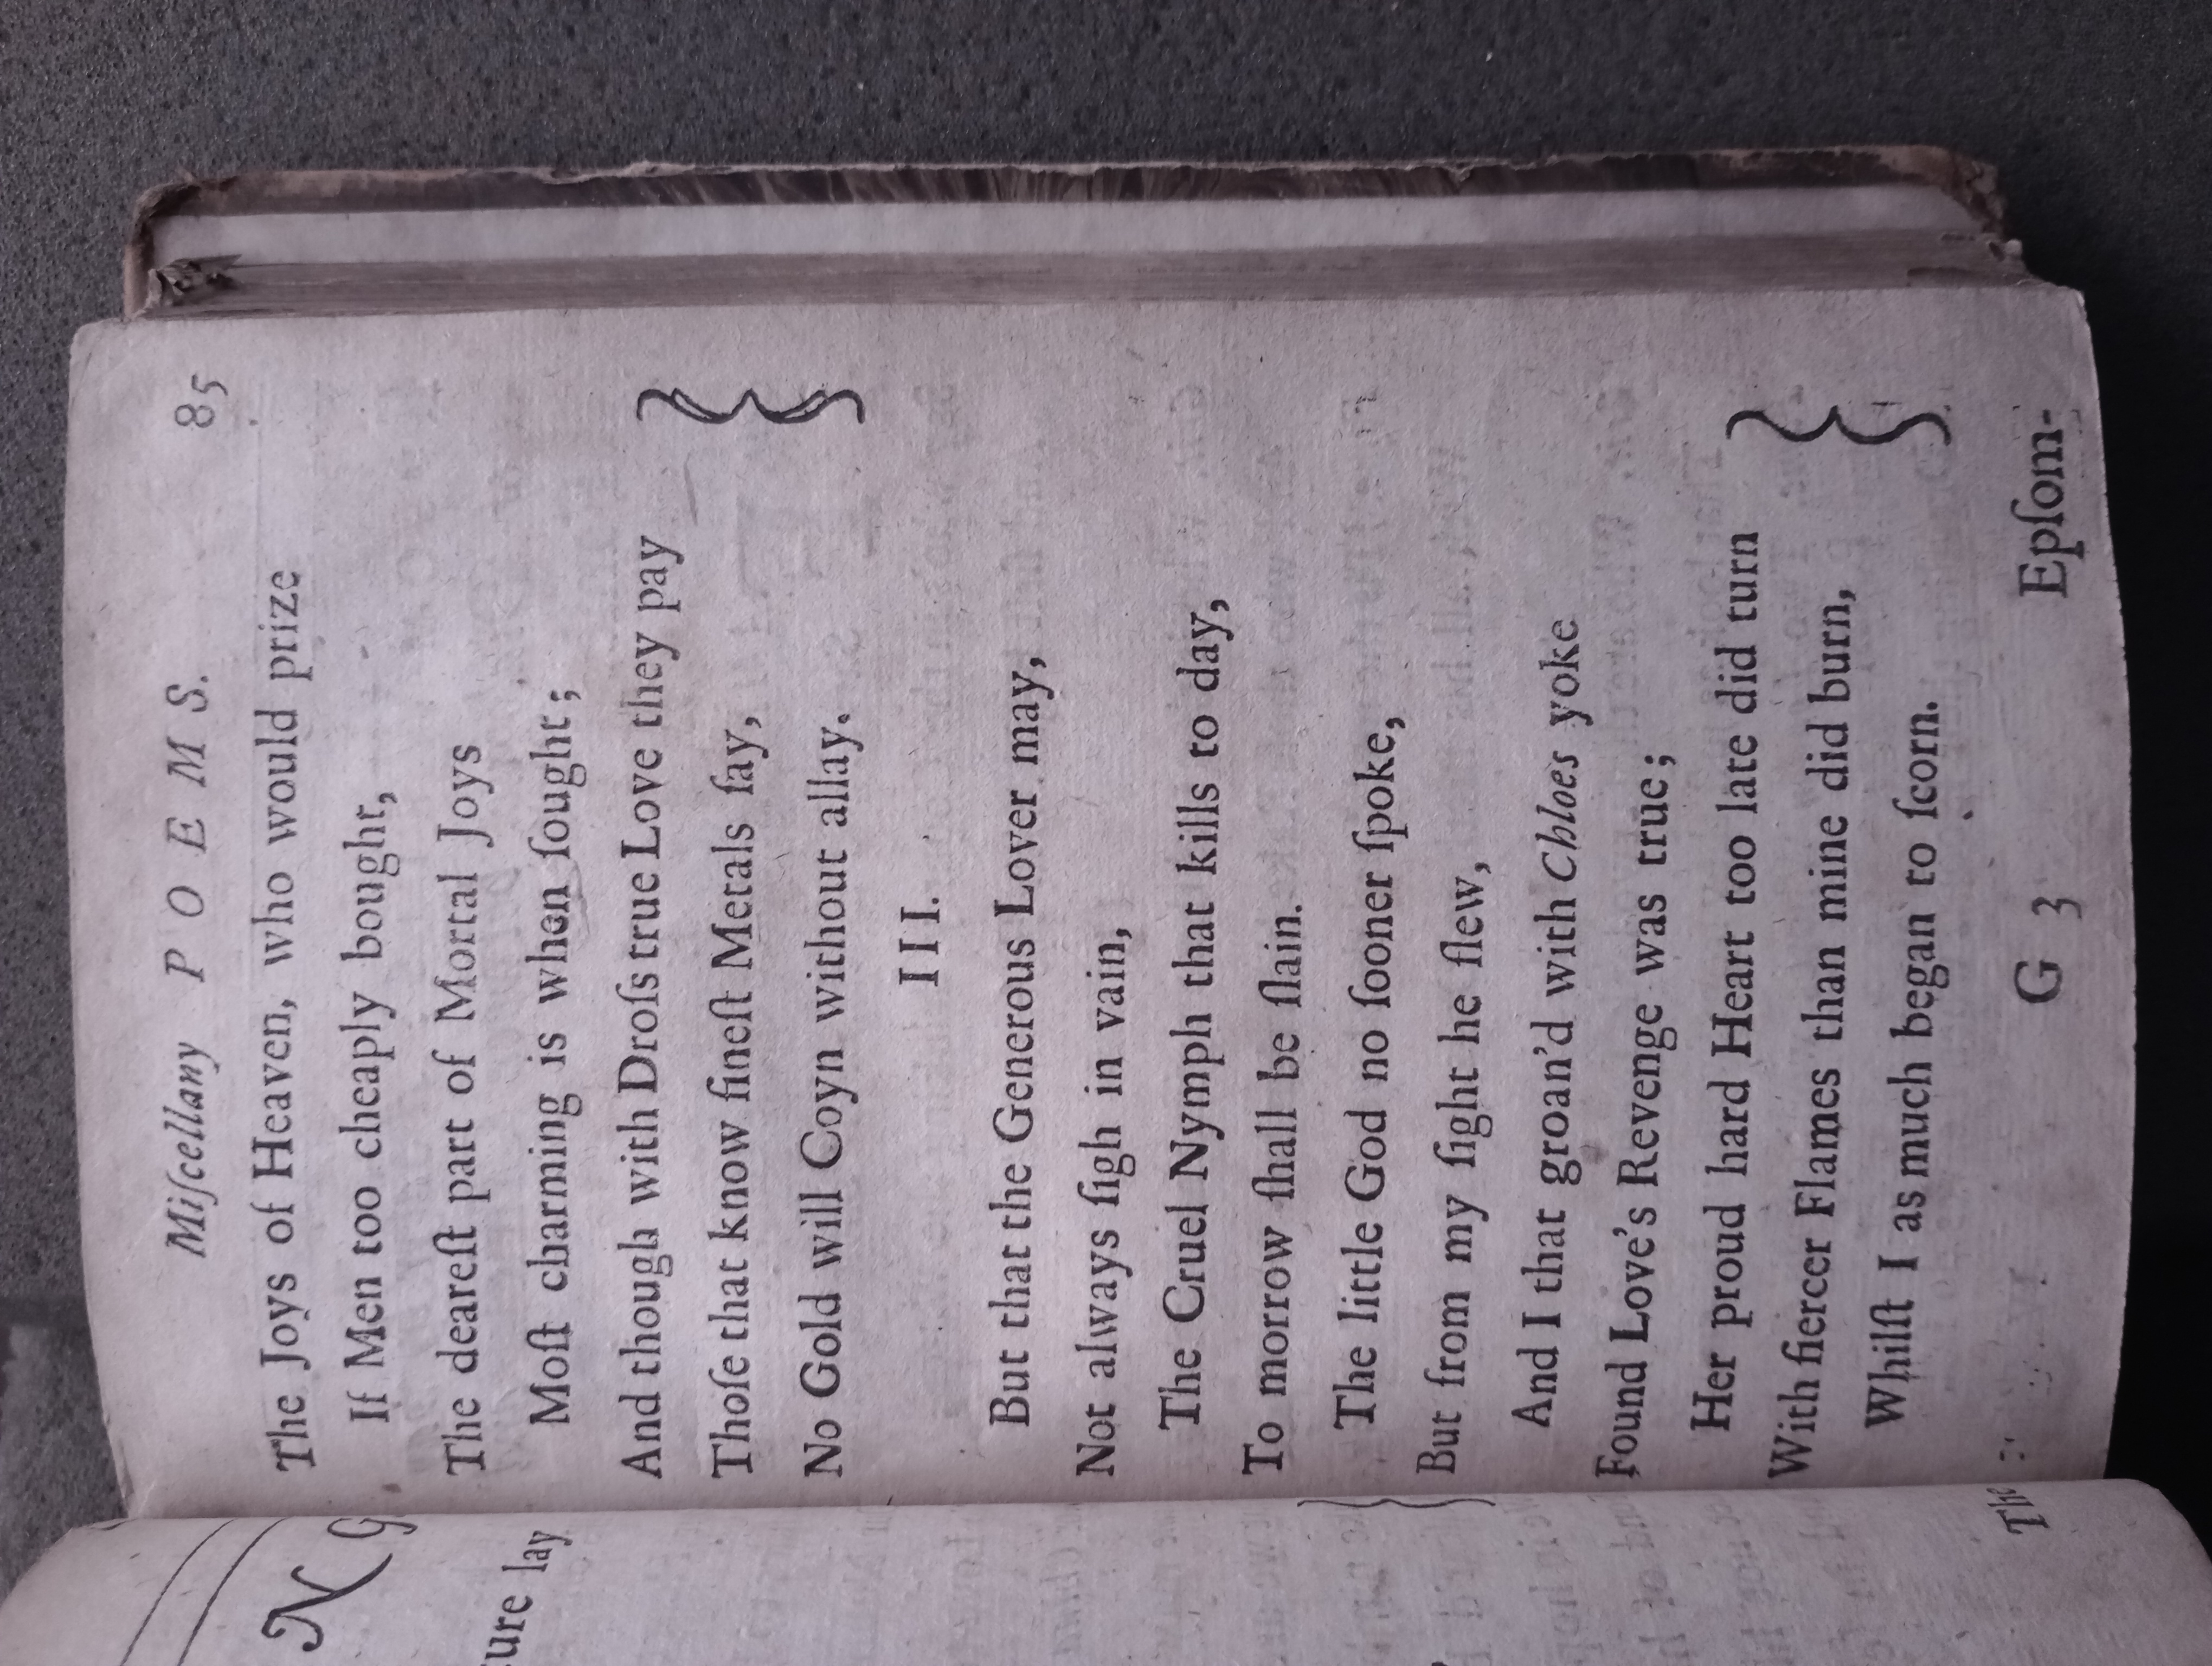 N G
ture lay
The
Miſcellany POEMS. 85
The Joys of Heaven, who would prize
If Men too cheaply bought,
The deareſt part of Mortal Joys
Moſt charming is when ſought;
And though with Droſs true Love they pay
Thoſe that know fineſt Metals ſay,
No Gold will Coyn without allay.
III.
But that the Generous Lover may,
Not always ſigh in vain,
The Cruel Nymph that kills to day,
To morrow ſhall be ſlain.
The little God no ſooner ſpoke,
But from my ſight he flew,
And I that groan'd with Chloes yoke
Found Love's Revenge was true;
Her proud hard Heart too late did turn
With fiercer Flames than mine did burn,
Whilſt I as much began to ſcorn.
G 3 Epſom-